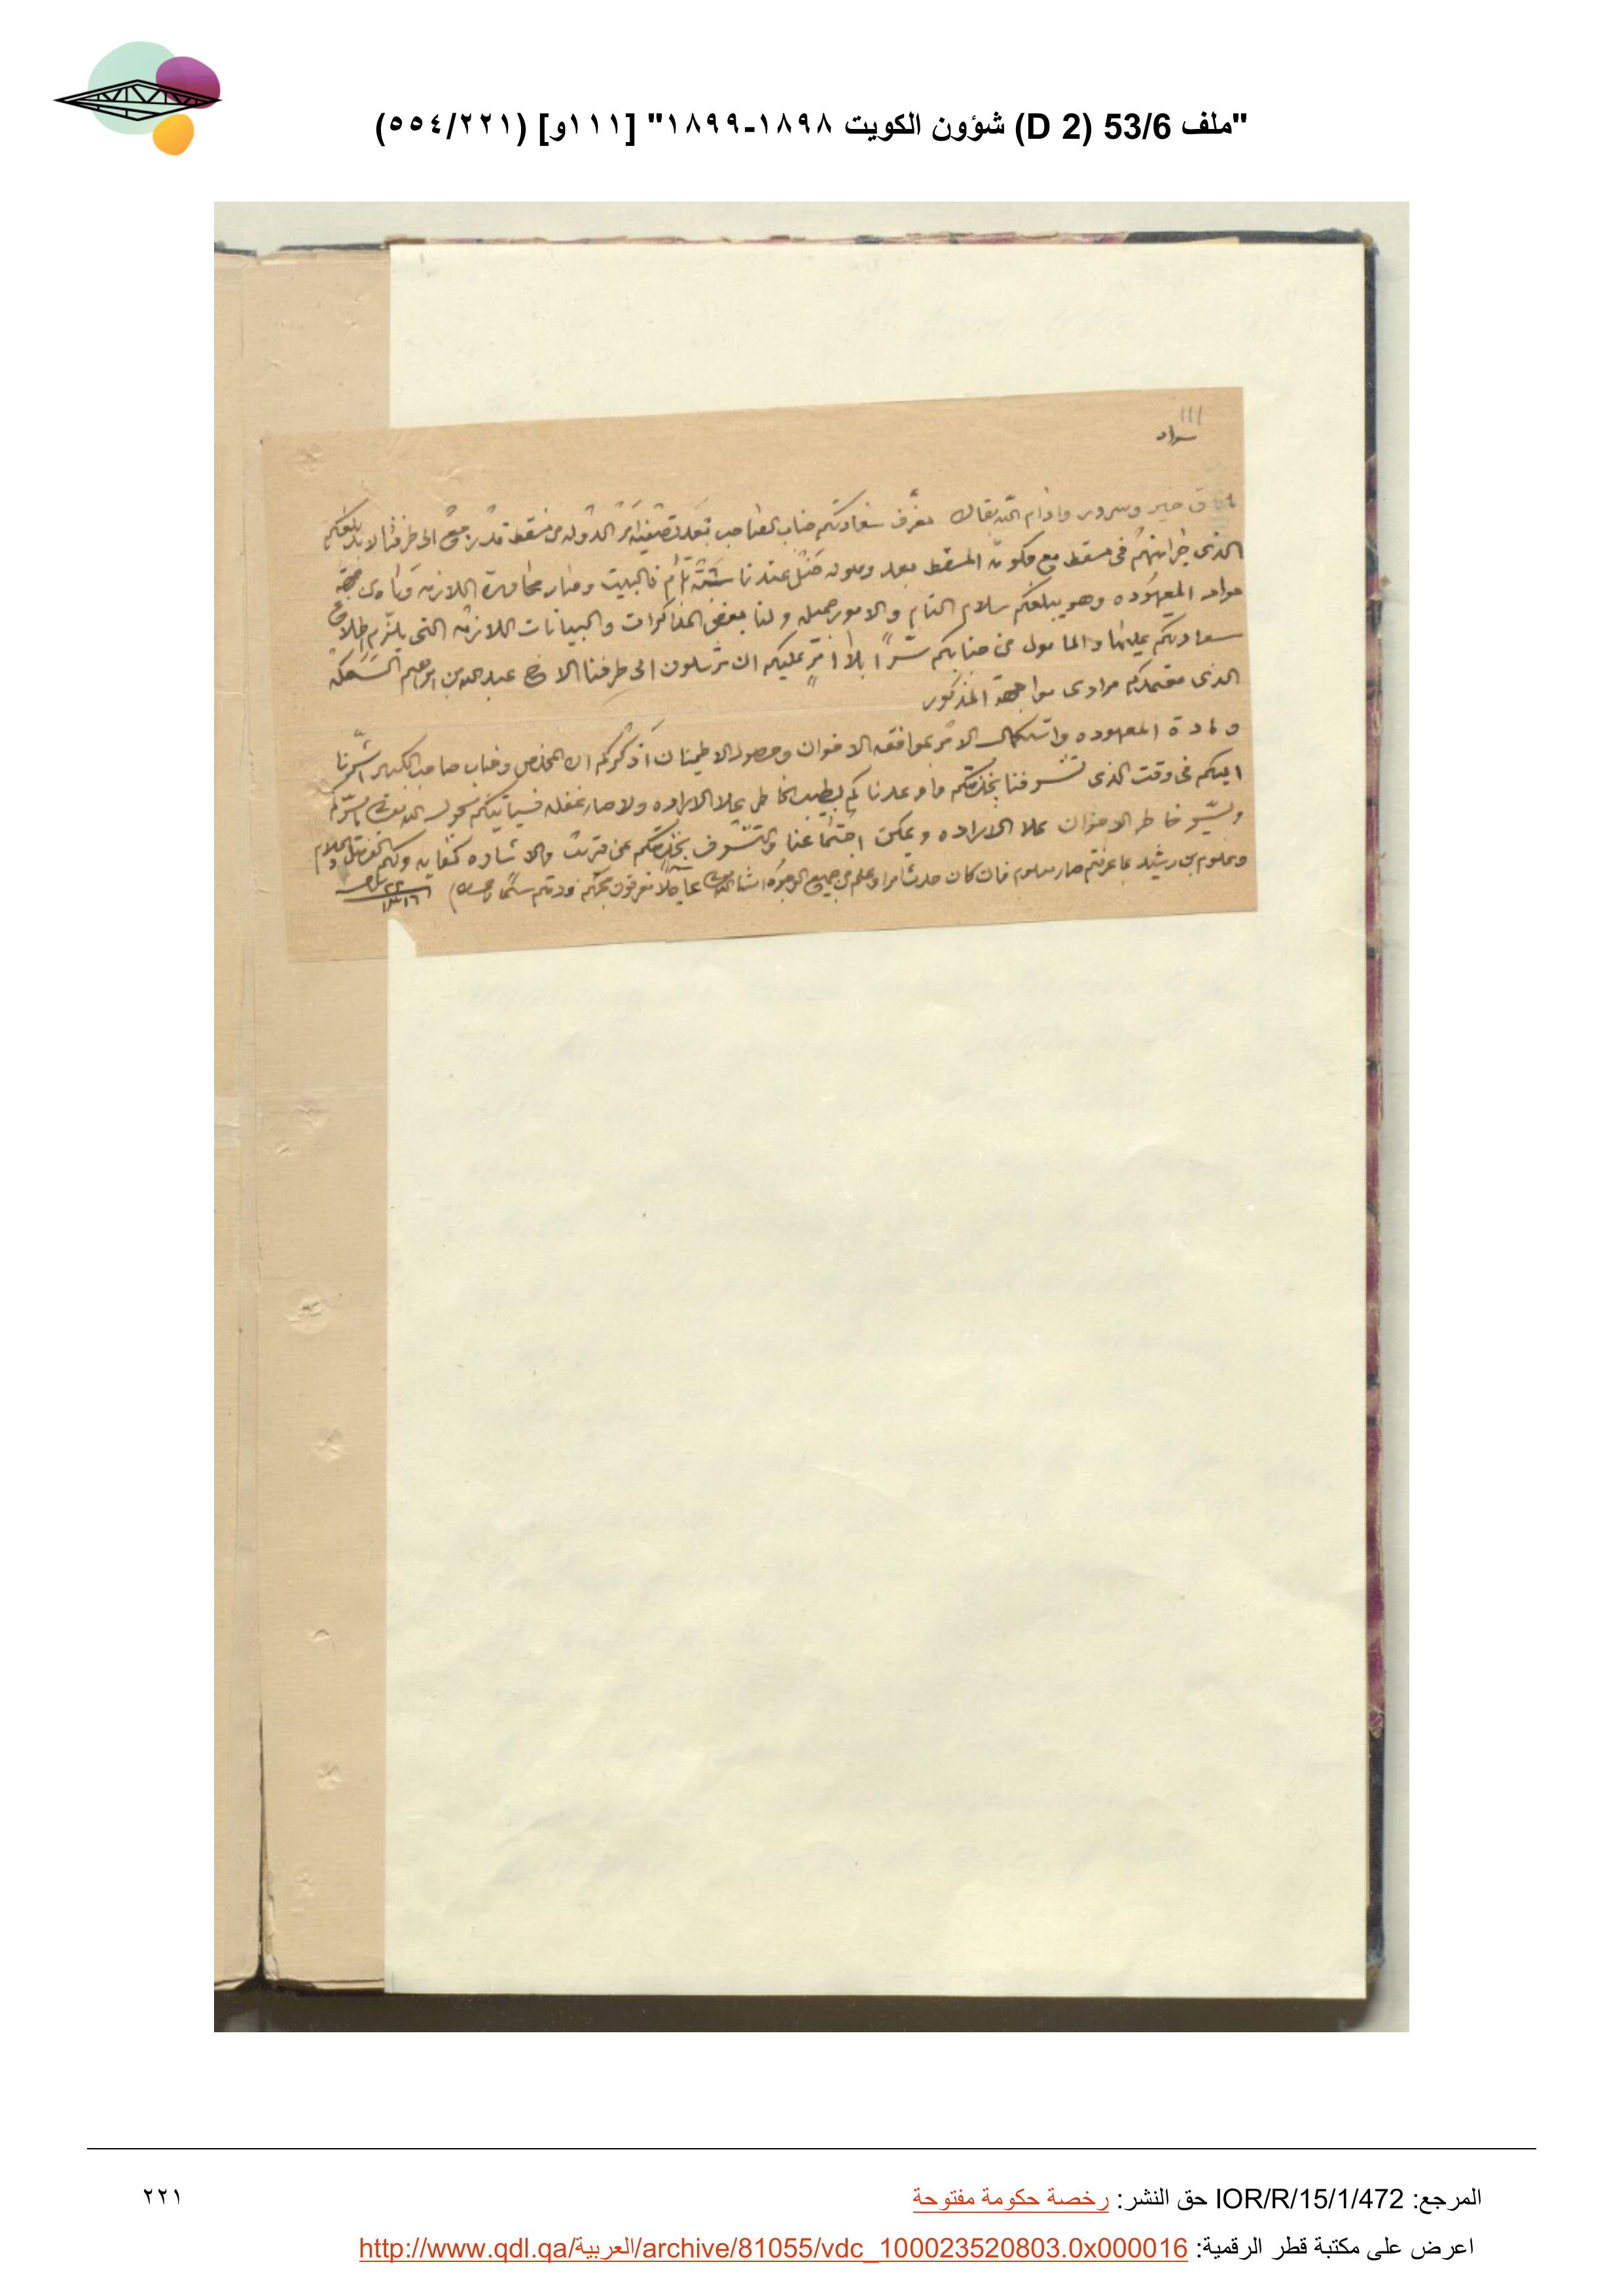 "ملف 53/6 (D 2) شؤون الكويت ١٨٩٨-١٨٩٩" [١١١و] (٥٥٤/٢٢١)
١١١
سواد
خير وسرور وادام الله بقاك معرف سعادتكم جناب الصاحب بعد تصفية امر الدوله من مسقط قد رجع الى طرفنا لابد بلغكم
الذي جرا منهم في مسقط مع حكومة المسقط بعد وصوله عندنا في البيت وصار مخابرة اللازمه
مواد المعهوده وهو يبلغكم سلام التام والامور جميله ولنا بعض المذاكرات والبيانات اللازمه التي يلزم اطلاع
سعادتكم عليها والمامول من جنابكم سراً بلا امر عليكم ان ترسلون الى طرفنا الاخ عبدالله بن ابراهيم
الذي معتمدكم مرادي مواجهة المذكور
ومادة المعهوده واستكمال الامر بموافقه الاخوان وحصول الاطمينان اذكركم ان المخلص وجناب صاحب الكبير اشرنا
اليكم في وقت الذي تشرفنا بخدمتكم وما وعدناكم بطيب الخاطر علا الاراده ولا صار غفله فسياتيكم
خاطر الاخوان علا الاراده ويمكن اجتماعنا والتشرف بخدمتكم عن قريب والاشاره كفايه
ومعلوم بن رشيد بما عرفتم صار معلوم فان كان حدث امر او علم من جميع الوجوه انشاء الله عاجلاً تعرفون محبكم ودمتم
المرجع: IOR/R/15/1/472 حق النشر: رخصة حكومة مفتوحة
٢٢١
اعرض على مكتبة قطر الرقمية: http://www.qdl.qa/العربية/archive/81055/vdc_100023520803.0x000016